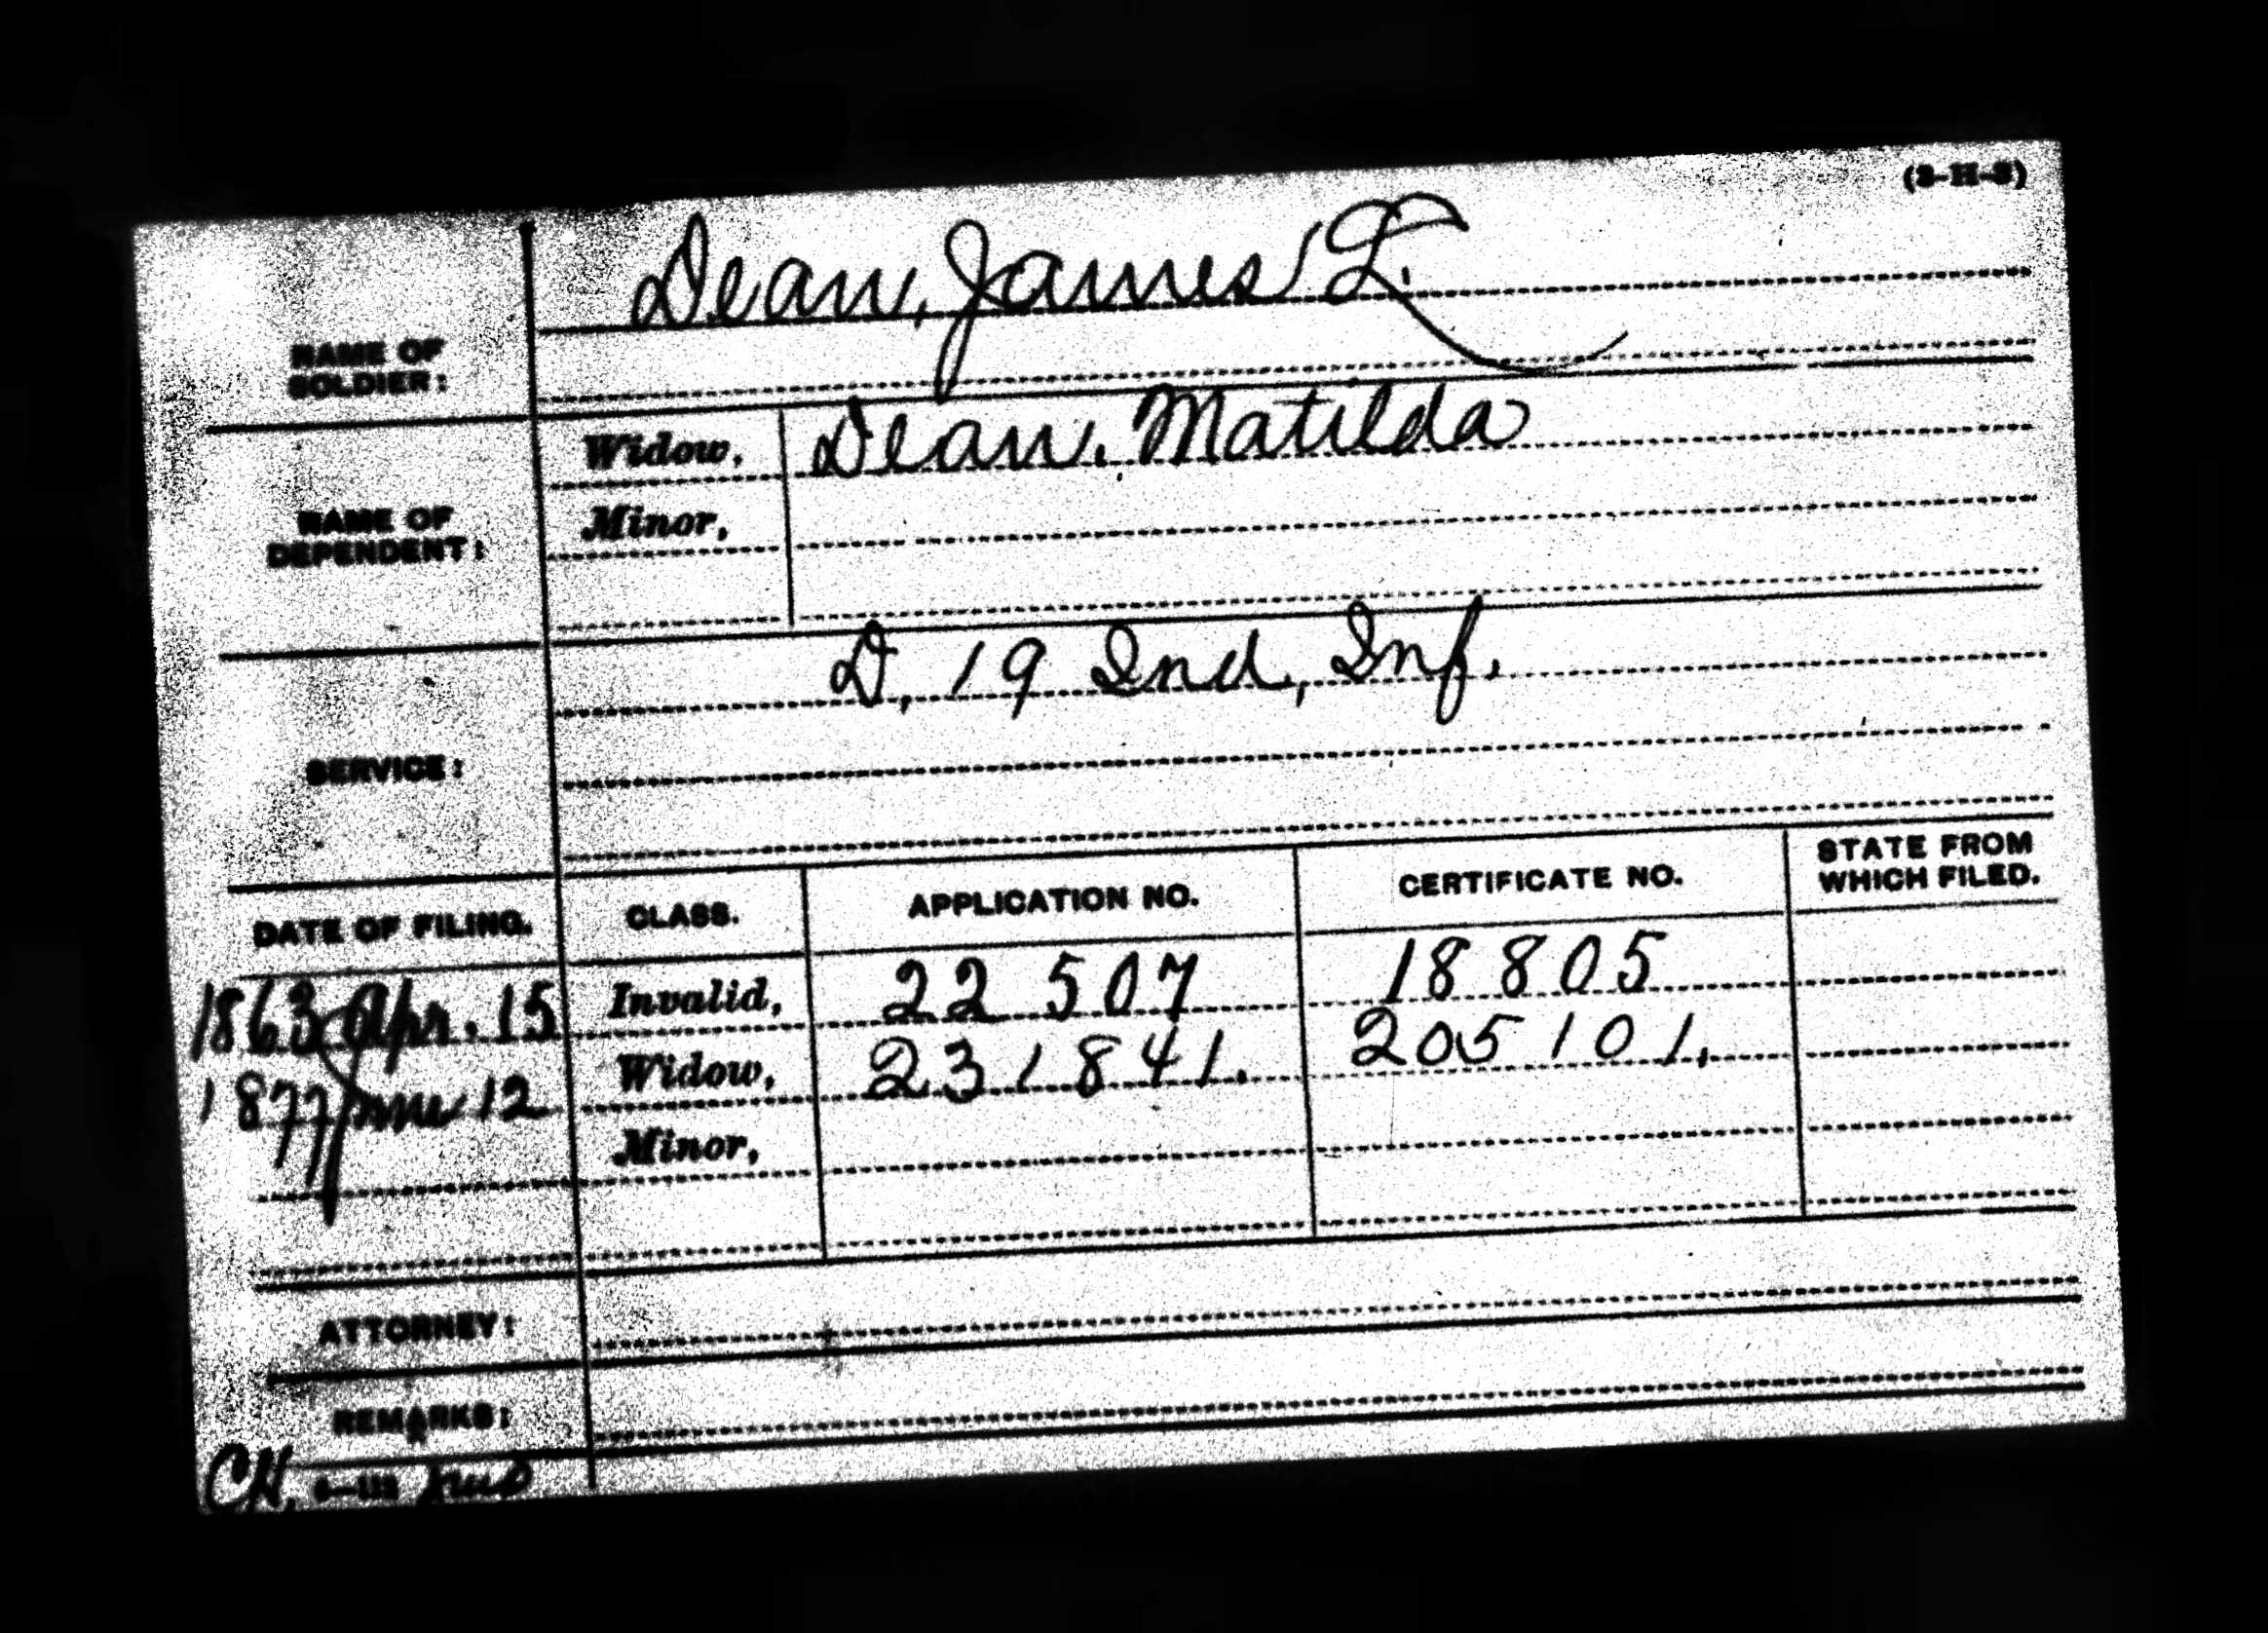 (3-H-3)
NAME OF SOLDIER: Dean, James L.
NAME OF DEPENDENT:
Widow, Dean, Matilda
Minor,
SERVICE: D, 19 Ind, Inf.
DATE OF FILING. CLASS. APPLICATION NO. CERTIFICATE NO. STATE FROM WHICH FILED.
1863 Apr. 15 Invalid, 22 507 18 805
1877 June 12 Widow, 231 841. 205 101.
Minor,
ATTORNEY:
REMARKS:
CH.